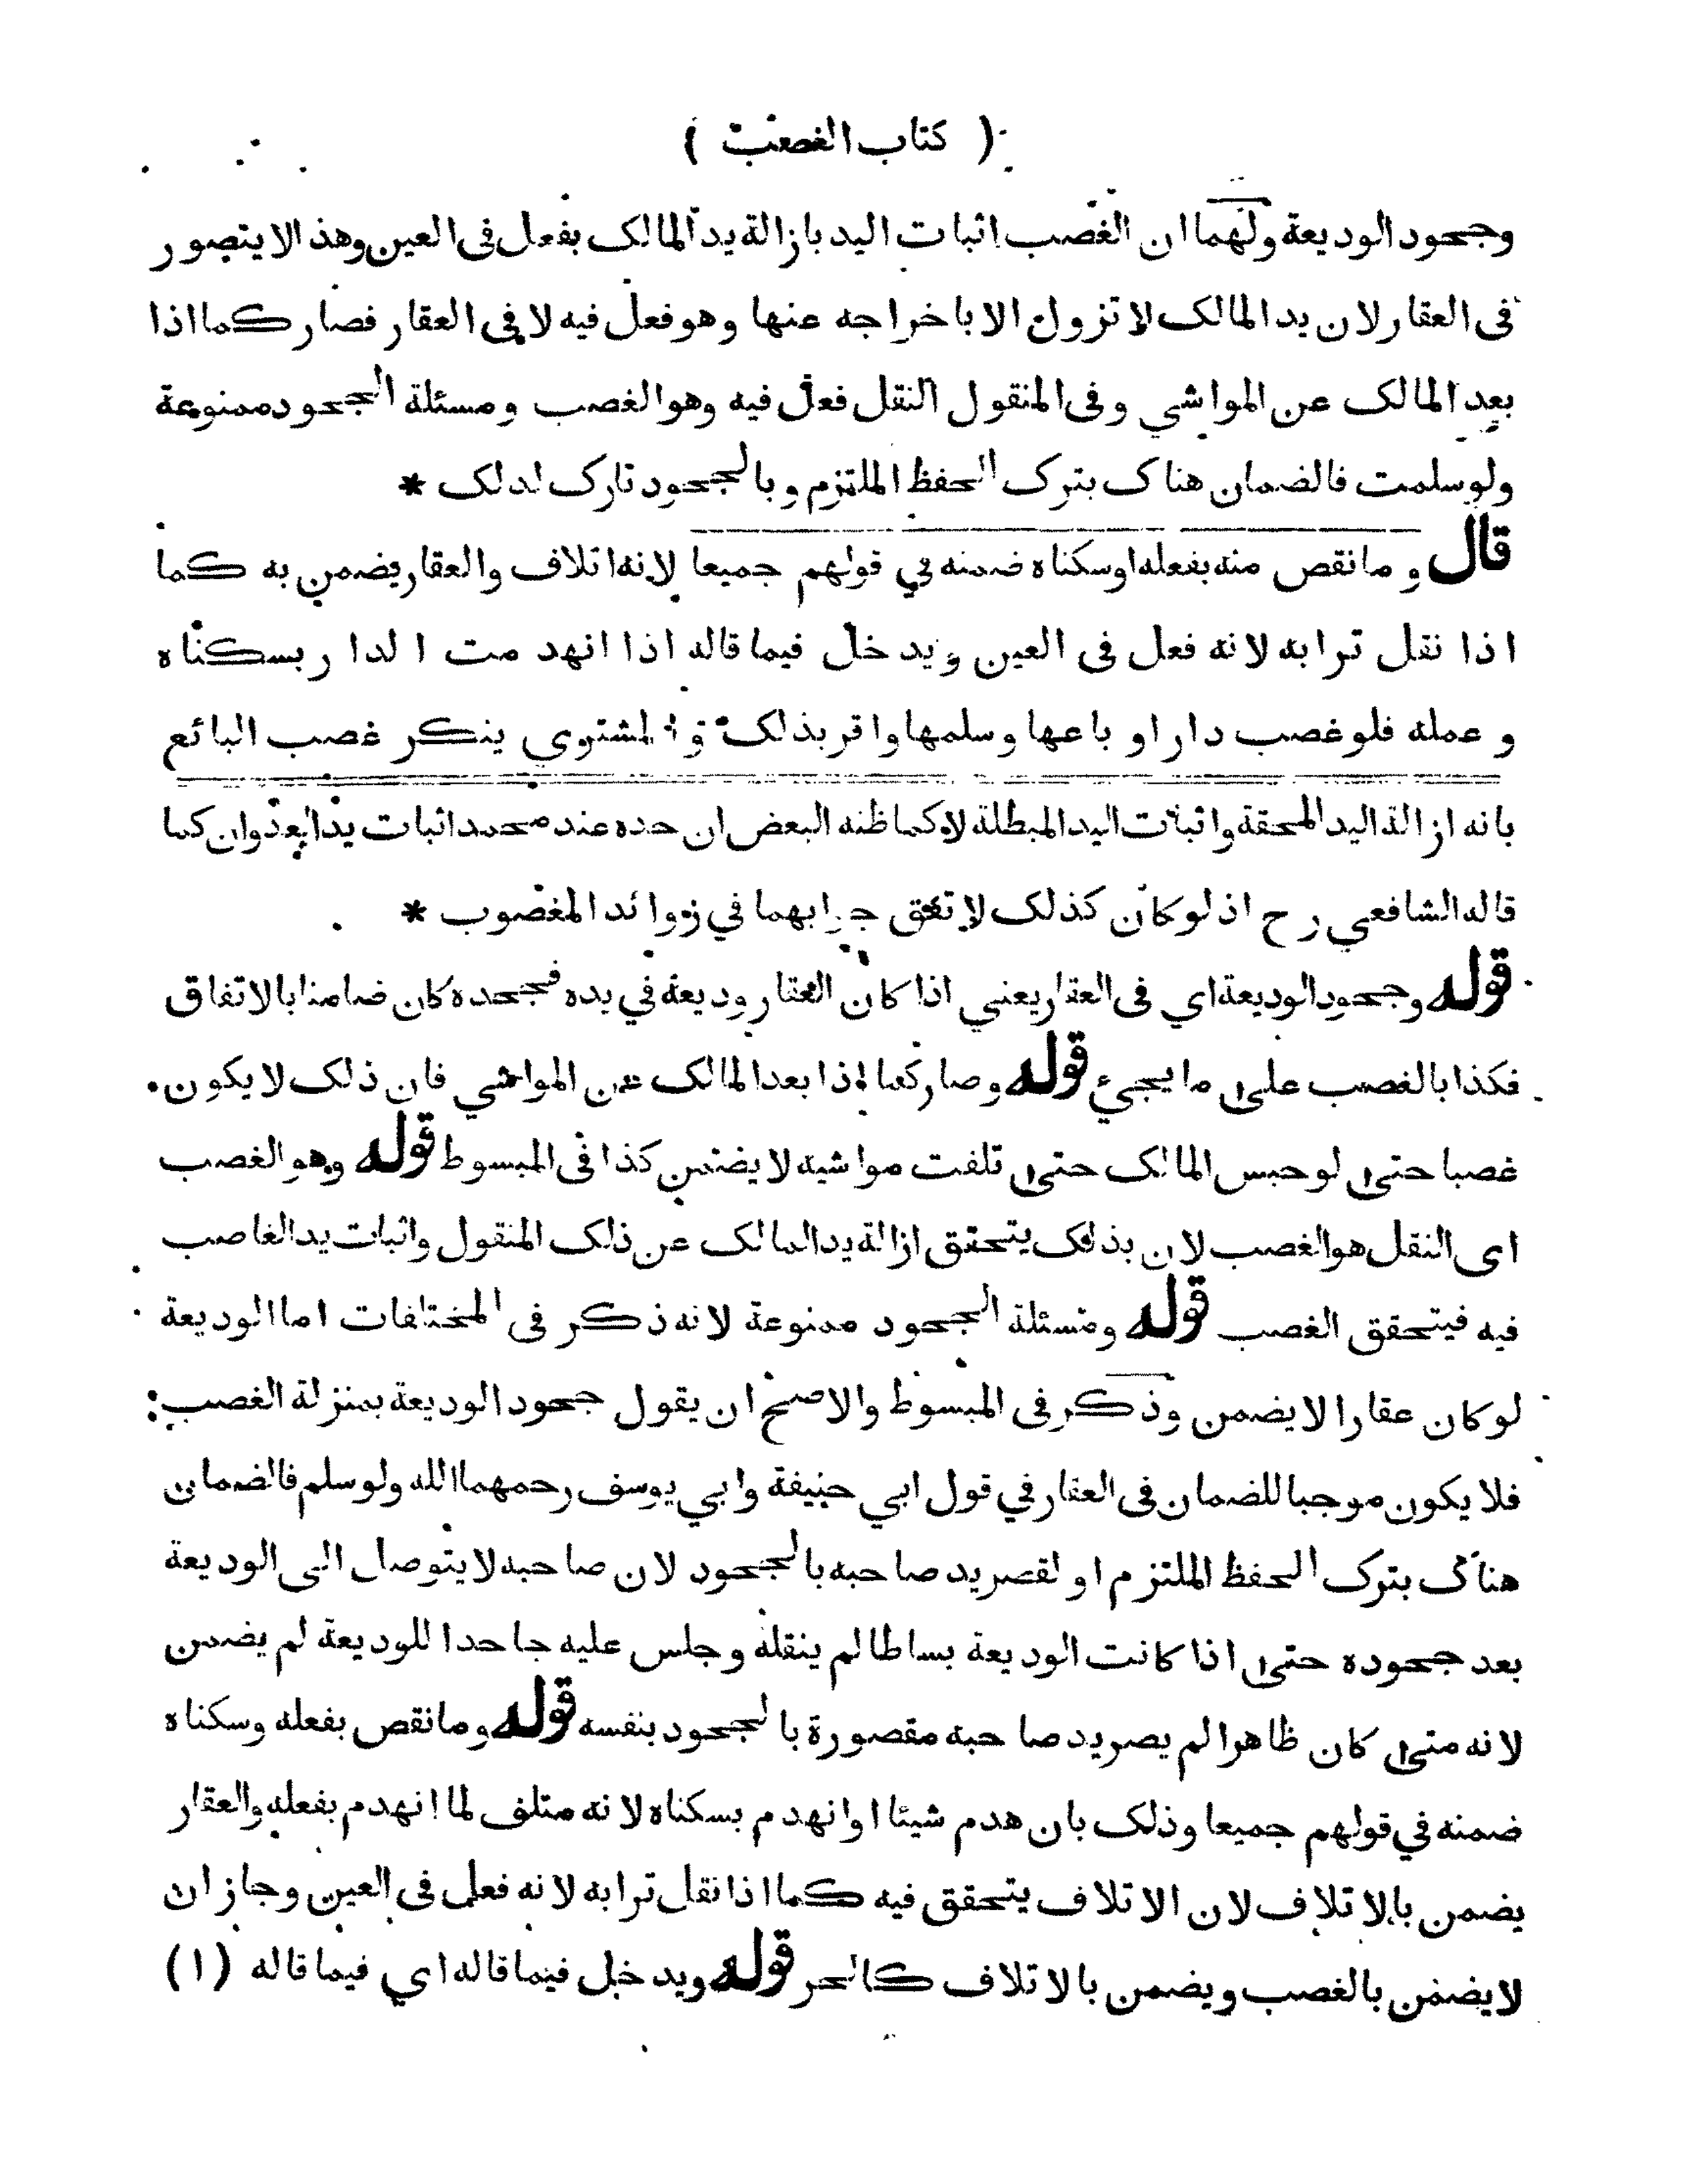 ( كتاب الغصب )
وجحود الوديعة ولهما ان الغصب اثبات اليد بازالة يد المالك بفعل فى العين وهذا لا يتصور
فى العقار لان يد المالك لا تزول الا باخراجه عنها وهو فعل فيه لا فى العقار فصار كما اذا
بعد المالك عن المواشي وفى المنقول النقل فعل فيه وهو الغصب ومسئلة الجحود ممنوعة
ولو سلمت فالضمان هناك بترك الحفظ الملتزم وبالجحود تارك لذلك *
قال وما نقص منه بفعله او سكناه ضمنه في قولهم جميعا لانه اتلاف والعقار يضمن به كما
اذا نقل ترابه لانه فعل فى العين ويدخل فيما قاله اذا انهدمت الدار بسكناه
وعمله فلو غصب دارا و باعها وسلمها واقر بذلك والمشتري ينكر غصب البائع
بانه ازالة اليد المحقة واثبات اليد المبطلة لا كما ظنه البعض ان حده عند محمد اثبات يد العدوان كما
قاله الشافعي رح اذ لو كان كذلك لا تفق جوابهما في زوائد المغصوب *
قوله وجحود الوديعة اي فى العقار يعني اذا كان العقار وديعة في يده فجحده كان ضامنا بالاتفاق
فكذا بالغصب على ما يجيئ قوله وصار كما اذا بعد المالك عن المواشي فان ذلك لا يكون
غصبا حتى لو حبس المالك حتى تلفت مواشيه لا يضمن كذا فى المبسوط قوله وهو الغصب
اى النقل هو الغصب لان بذلك يتحقق ازالة يد المالك عن ذلك المنقول واثبات يد الغاصب
فيه فيتحقق الغصب قوله ومسئلة الجحود ممنوعة لانه ذكر فى المختلفات اما الوديعة
لو كان عقارا لا يضمن وذكر فى المبسوط والاصح ان يقول جحود الوديعة بمنزلة الغصب
فلا يكون موجبا للضمان فى العقار في قول ابي حنيفة وابي يوسف رحمهما الله ولو سلم فالضمان
هناك بترك الحفظ الملتزم او لقصر يد صاحبه بالجحود لان صاحبه لا يتوصل الى الوديعة
بعد جحوده حتى اذا كانت الوديعة بساطا لم ينقله وجلس عليه جاحدا للوديعة لم يضمن
لانه متى كان ظاهرا لم يصر يد صاحبه مقصورة بالجحود بنفسه قوله وما نقص بفعله وسكناه
ضمنه في قولهم جميعا وذلك بان هدم شيئا او انهدم بسكناه لانه متلف لما انهدم بفعله والعقار
يضمن بالاتلاف لان الاتلاف يتحقق فيه كما اذا نقل ترابه لانه فعل فى العين وجاز ان
لا يضمن بالغصب ويضمن بالاتلاف كالحر قوله ويدخل فيما قاله اي فيما قاله (١)